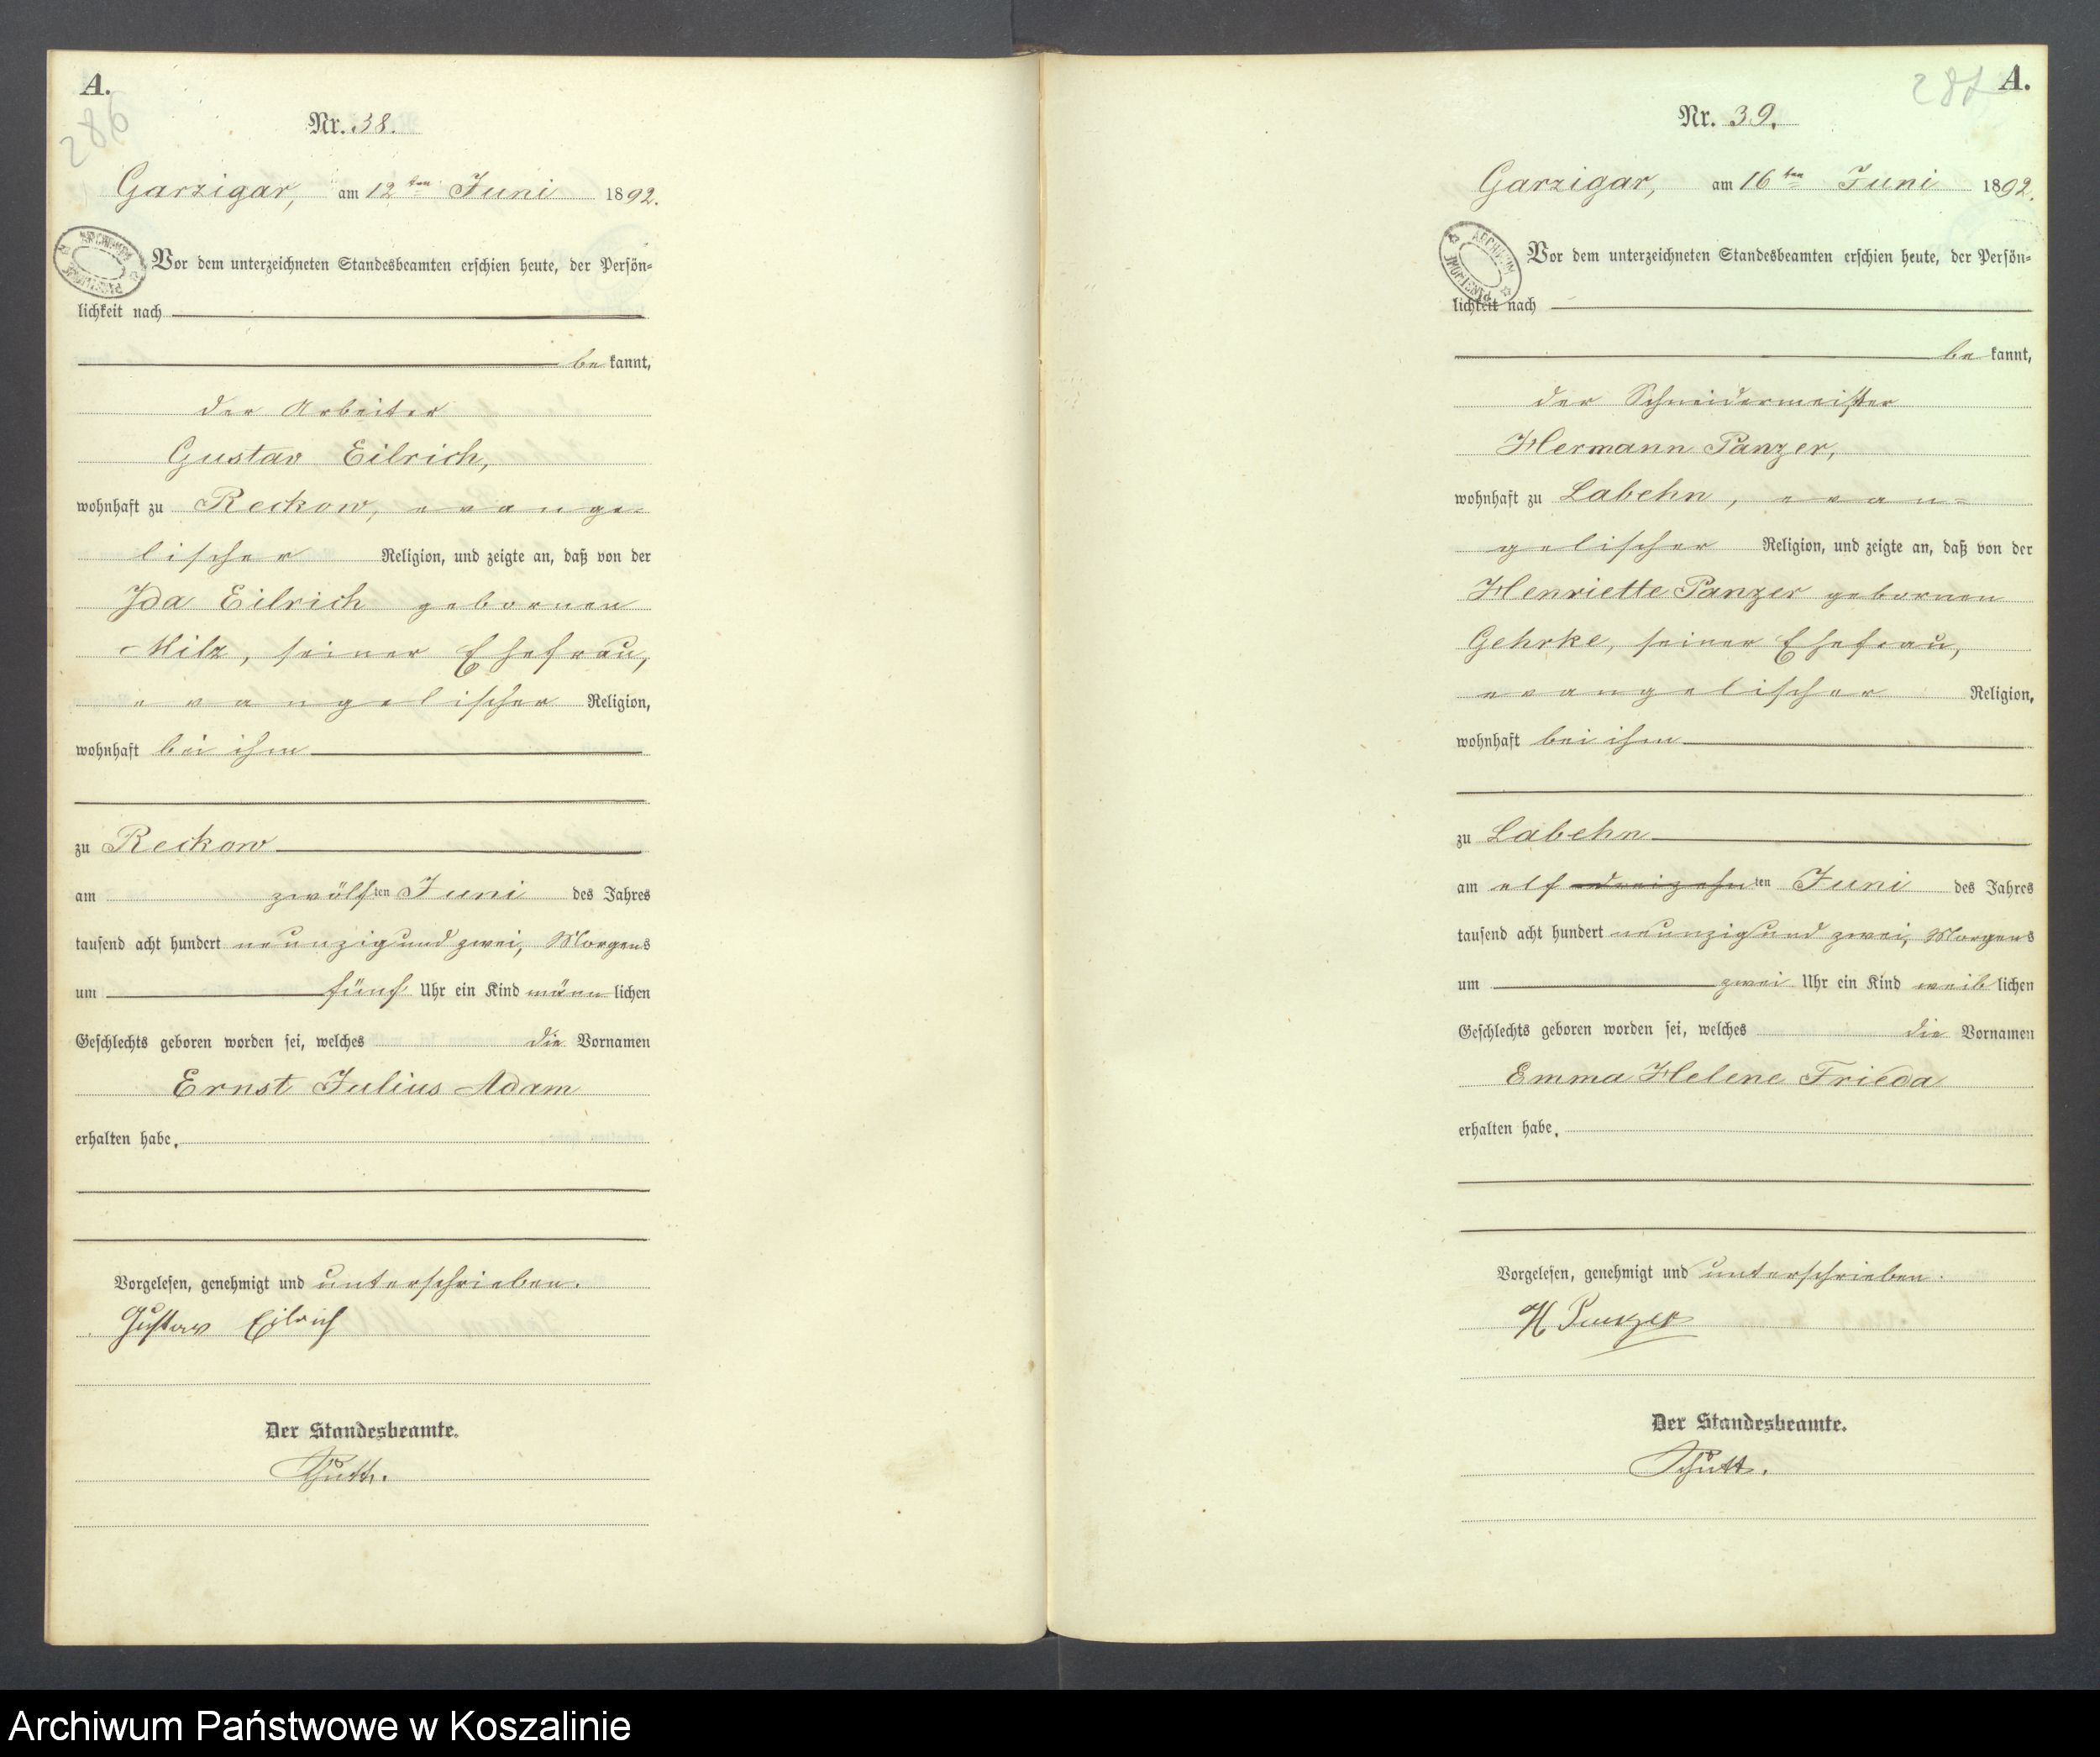 A.
286
Nr. 38.
Garzigar, am 12ten Juni 1892.
Vor dem unterzeichneten Standesbeamten erschien heute, der Persön-
lichkeit nach
be kannt,
der Arbeiter
Gustav Eilrich,
wohnhaft zu Reckow, evange-
lischer Religion, und zeigte an, daß von der
Ida Eilrich gebornen
Milz, seiner Ehefrau,
evangelischer Religion,
wohnhaft bei ihm
zu Reckow
am zwölften Juni des Jahres
tausend acht hundert neunzig und zwei, Morgens
um fünf Uhr ein Kind männlichen
Geschlechts geboren worden sei, welches die Vornamen
Ernst Julius Adam
erhalten habe.
Vorgelesen, genehmigt und unterschrieben.
Gustav Eilrich
Der Standesbeamte.
A.
287
Nr. 39.
Garzigar, am 16ten Juni 1892.
ARCHIWUM PAŃSTWOWE
Vor dem unterzeichneten Standesbeamten erschien heute, der Persön-
lichkeit nach
be kannt,
der Schneidermeister
Hermann Panzer,
wohnhaft zu Labehn, evan-
gelischer Religion, und zeigte an, daß von der
Henriette Panzer gebornen
Gehrke, seiner Ehefrau,
evangelischer Religion,
wohnhaft bei ihm
zu Labehn
am elf dreizehnten Juni des Jahres
tausend acht hundert neunzig und zwei, Morgens
um zwei Uhr ein Kind weiblichen
Geschlechts geboren worden sei, welches die Vornamen
Emma Helene Frieda
erhalten habe.
Vorgelesen, genehmigt und unterschrieben.
H Panzer
Der Standesbeamte.
Archiwum Państwowe w Koszalinie